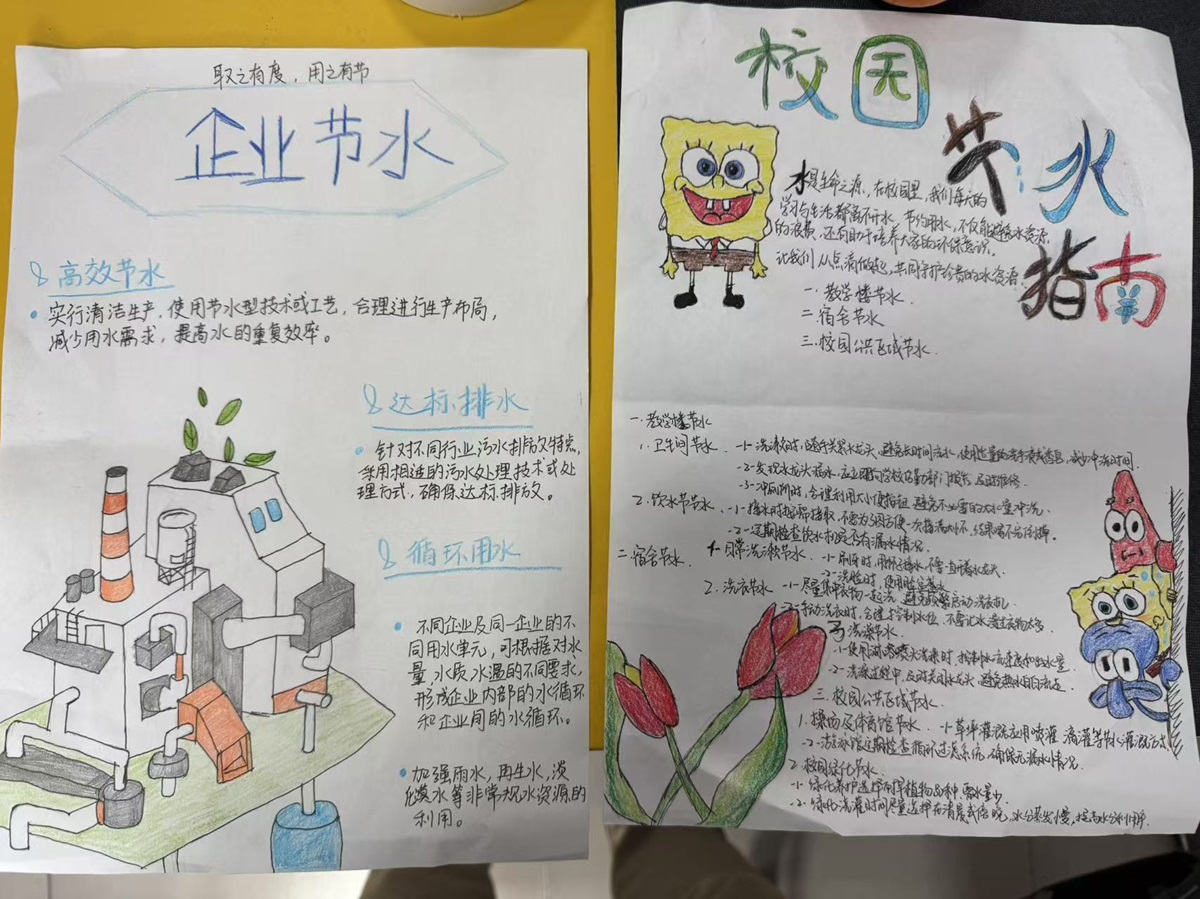 取之有度，用之有节
企业节水
高效节水
实行清洁生产，使用节水型技术或工艺，合理进行生产布局，
减少用水需求，提高水的重复效率。
达标排水
针对不同行业污水排放特点，
采用相适的污水处理技术或处
理方式，确保达标排放。
循环用水
不同企业及同一企业的不
同用水单元，可根据对水
量，水质，水温的不同要求，
形成企业内部的水循环
和企业间的水循环。
加强雨水，再生水，淡
化海水等非常规水资源的
利用。
校园
节水
指南
水是生命之源，在校园里，我们每天的
学习与生活都离不开水，节约用水，不仅能避免水资源
的浪费，还有助于培养大家的环保意识。
让我们从点滴做起，共同守护珍贵的水资源
一. 教学楼节水.
二. 宿舍节水
三. 校园公共区域节水.
一. 教学楼节水
1. 卫生间节水. -1- 洗漱时，随手关紧水龙头，避免长时间流水，
-2- 发现水龙头漏水，应立即向学校后勤部门报告，及时维修.
-3- 冲厕所时，合理利用大小便按钮，避免不必要的大水量冲洗.
2. 饮水节水. -1- 接水时按需接取，不要为了图方便一次接满
-2- 定期检查饮水机是否有漏水情况.
二. 宿舍节水. 1. 日常洗漱节水. -1- 刷牙时，用杯接水，不要一直开着水龙头.
-2- 洗脸时，使用脸盆装水.
2. 洗衣节水 -1- 尽量集中衣物一起洗，避免频繁启动洗衣机.
-2- 手动洗衣时，合理控制水位，不要让水漫过衣物太多.
3. 洗澡节水.
-1- 使用淋浴喷头洗澡时，控制水流速度和出水量.
-2- 洗澡过程中，及时关闭水龙头，避免热水白白流走.
三. 校园公共区域节水.
1. 操场及体育馆节水. -1- 草坪灌溉应用喷灌、滴灌等节水灌溉方式
-2- 游泳馆定期检查循环过滤系统，确保无漏水情况.
2. 校园绿化节水.
-1- 绿化养护选择耐旱植物品种，需水量少.
-2- 绿化浇灌时间尽量选择在清晨或傍晚，水分蒸发慢，提高水分利用率.